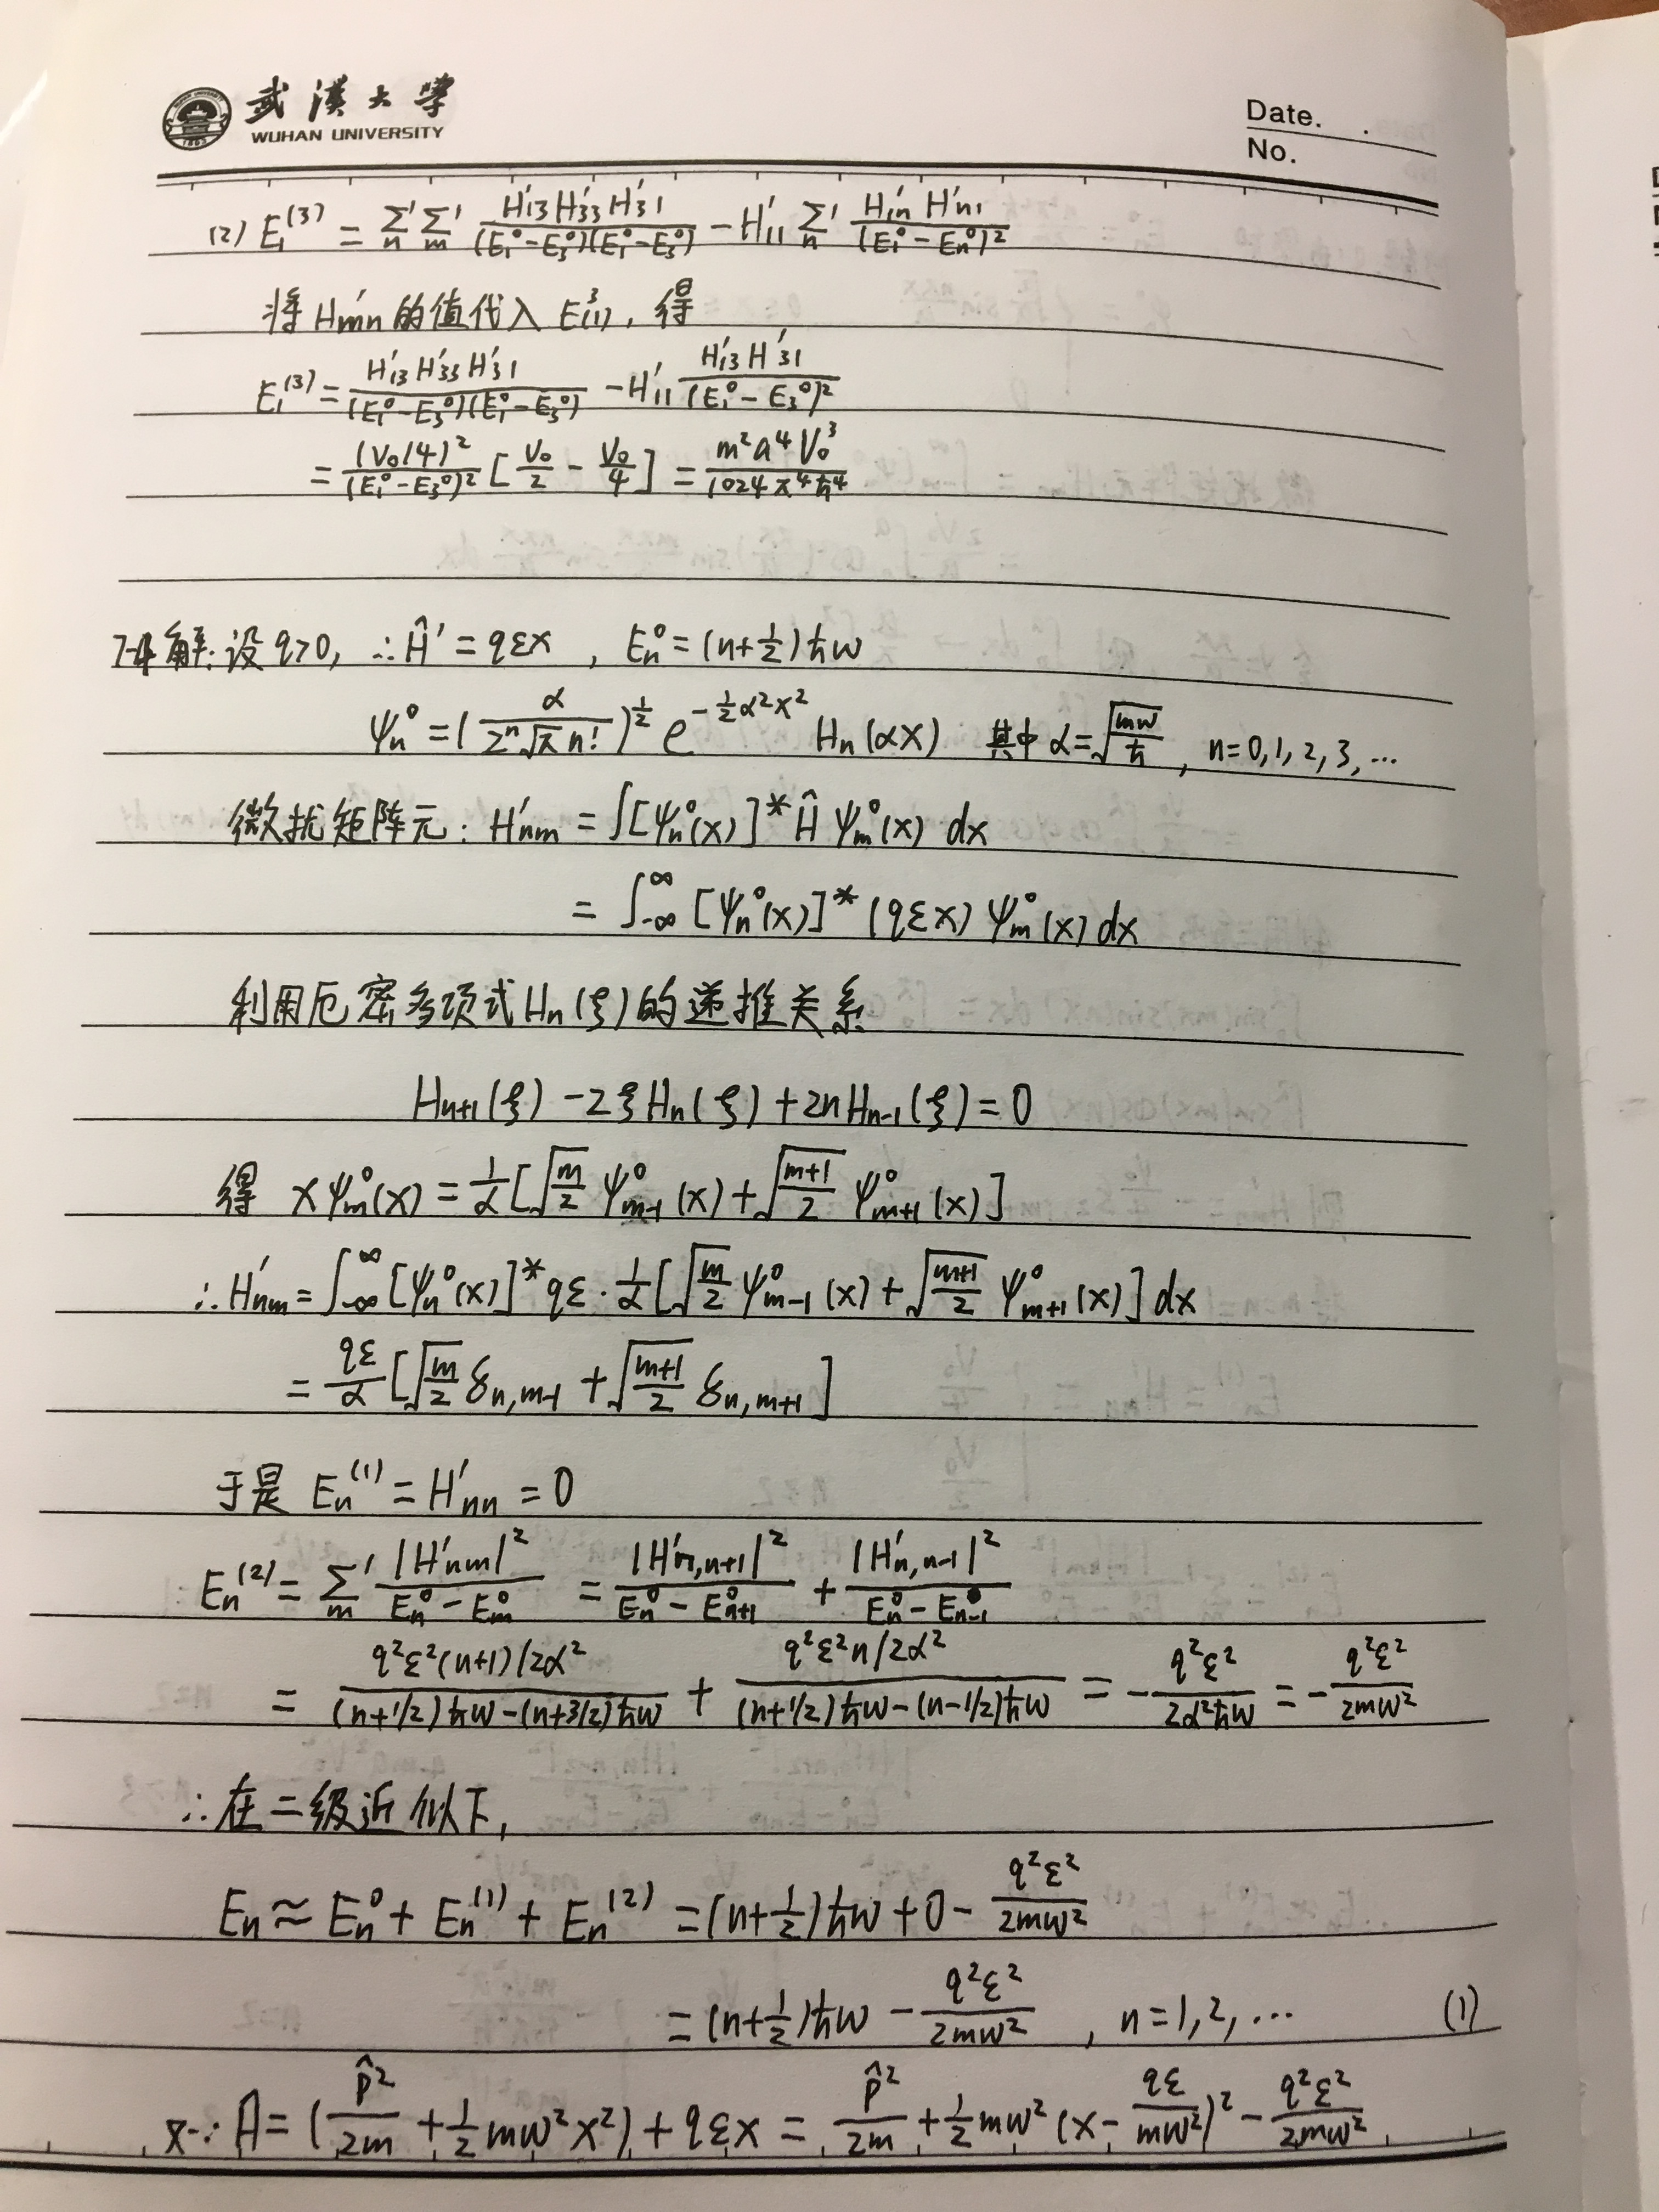 武漢大學
WUHAN UNIVERSITY
Date. .
No.
(2) E₁⁽³⁾ = Σ'ₙ Σ'ₘ H'₁₃H'₃₃H'₃₁/((E₁⁰−E₃⁰)(E₁⁰−E₃⁰)) − H'₁₁ Σ'ₙ H'₁ₙ H'ₙ₁/(E₁⁰−Eₙ⁰)²
将 H'mn 的值代入 E₍₁₎³, 得
E₁⁽³⁾ = H'₁₃ H'₃₃ H'₃₁/((E₁⁰−E₃⁰)(E₁⁰−E₃⁰)) − H'₁₁ H'₁₃ H'₃₁/(E₁⁰−E₃⁰)²
= (V₀/4)²/(E₁⁰−E₃⁰)² [V₀/2 − V₀/4] = m²a⁴V₀³/(1024π⁴ħ⁴)
7-4 解: 设 q>0, ∴ Ĥ' = qεx , Eₙ⁰ = (n+1/2)ħω
ψₙ⁰ = (α/(2ⁿ√π n!))^(1/2) e^(−½α²x²) Hₙ(αx) 其中 α=√(mω/ħ) , n=0,1,2,3,…
微扰矩阵元: H'nm = ∫[ψₙ⁰(x)]* Ĥ ψₘ⁰(x) dx
= ∫_{-∞}^{∞} [ψₙ⁰(x)]* (qεx) ψₘ⁰(x) dx
利用厄密多项式 Hₙ(ξ) 的递推关系
Hₙ₊₁(ξ) − 2ξHₙ(ξ) + 2nHₙ₋₁(ξ) = 0
得 xψₘ⁰(x) = 1/α [√(m/2) ψ⁰ₘ₋₁(x) + √((m+1)/2) ψ⁰ₘ₊₁(x)]
∴ H'nm = ∫_{-∞}^{∞} [ψₙ⁰(x)]* qε · 1/α [√(m/2) ψ⁰ₘ₋₁(x) + √((m+1)/2) ψ⁰ₘ₊₁(x)] dx
= qε/α [√(m/2) δ_{n,m-1} + √((m+1)/2) δ_{n,m+1}]
于是 Eₙ⁽¹⁾ = H'nn = 0
Eₙ⁽²⁾ = Σ'ₘ |H'nm|²/(Eₙ⁰−Eₘ⁰) = |H'n,n+1|²/(Eₙ⁰−E⁰ₙ₊₁) + |H'n,n-1|²/(Eₙ⁰−E⁰ₙ₋₁)
= (q²ε²(n+1)/2α²)/((n+1/2)ħω−(n+3/2)ħω) + (q²ε²n/2α²)/((n+1/2)ħω−(n−1/2)ħω) = −q²ε²/(2α²ħω) = −q²ε²/(2mω²)
∴ 在二级近似下,
Eₙ ≈ Eₙ⁰ + Eₙ⁽¹⁾ + Eₙ⁽²⁾ = (n+1/2)ħω + 0 − q²ε²/(2mω²)
= (n+1/2)ħω − q²ε²/(2mω²) , n=1,2,… (1)
又∵ Ĥ = (p̂²/2m + ½mω²x²) + qεx = p̂²/2m + ½mω²(x − qε/(mω²))² − q²ε²/(2mω²)